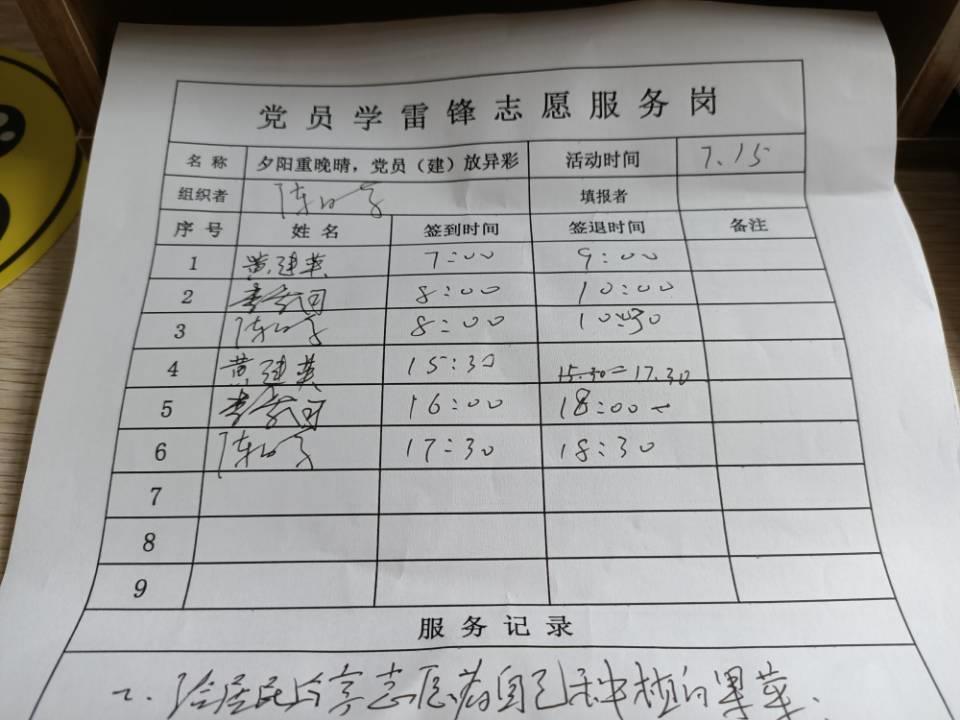 党员学雷锋志愿服务岗
名称 夕阳重晚晴，党员（建）放异彩 活动时间 7.15
组织者 填报者
序号 姓名 签到时间 签退时间 备注
1 黄建英 7:00 9:00
2 8:00 10:00
3 8:00 10:30
4 黄建英 15:30 15.30= 17.30
5 16:00 18:00
6 17:30 18:30
7
8
9
服务记录
给居民分享志愿者自己种植的果菜.